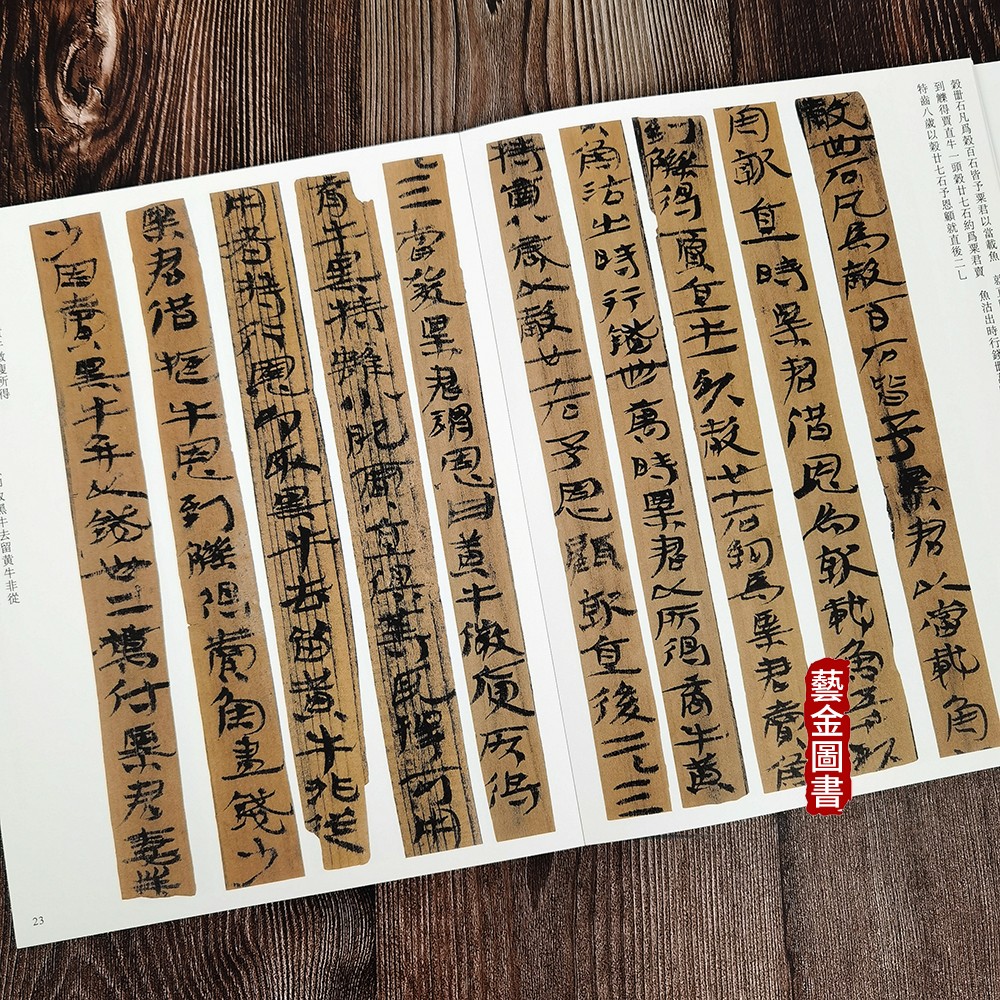 穀卌石凡爲穀百石皆予粟君以當載魚
到觻得賈直牛一頭穀廿七石約爲粟君賣 魚沽出時行錢卌
特齒八歲以穀廿七石予恩顧就直後二し
穀卌石凡爲穀百石皆予粟君以當載魚
魚就直時粟君借恩爲就載魚五千頭
到觻得賈直牛一頭穀廿七石約爲粟君賣魚
魚沽出時行錢卌萬時粟君以所得商牛黃
特齒八歲以穀廿七石予恩顧就直後二三
二三當發粟君謂恩曰黃牛微庾所得
商牛黑特雖小肥賈直俱等耳擇可用
用者持行恩即取黑牛去留黃牛非從
粟君借牻牛恩到觻得賣魚盡錢少
少因賣黑牛并以錢卅二萬付粟君妻業
微庾所得
取黑牛去留黃牛非從
23
藝金圖書